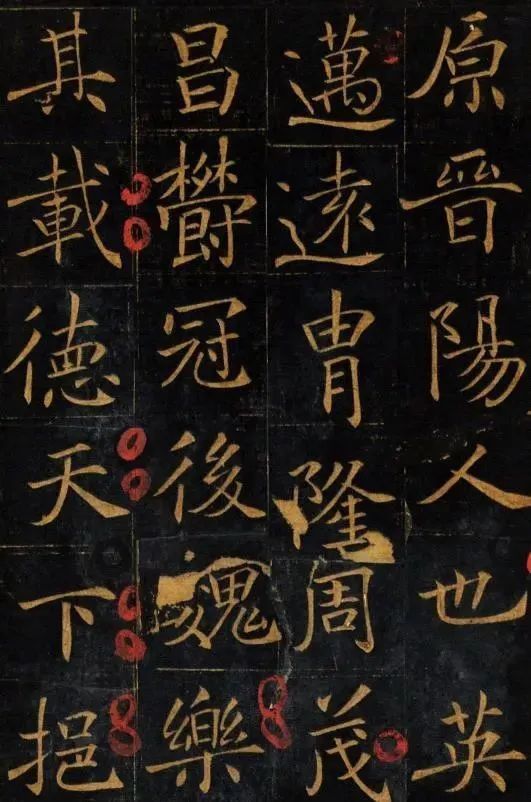 原晉陽人也英
邁遠冑隆周茂
昌欝冠後魏樂
其載德天下挹